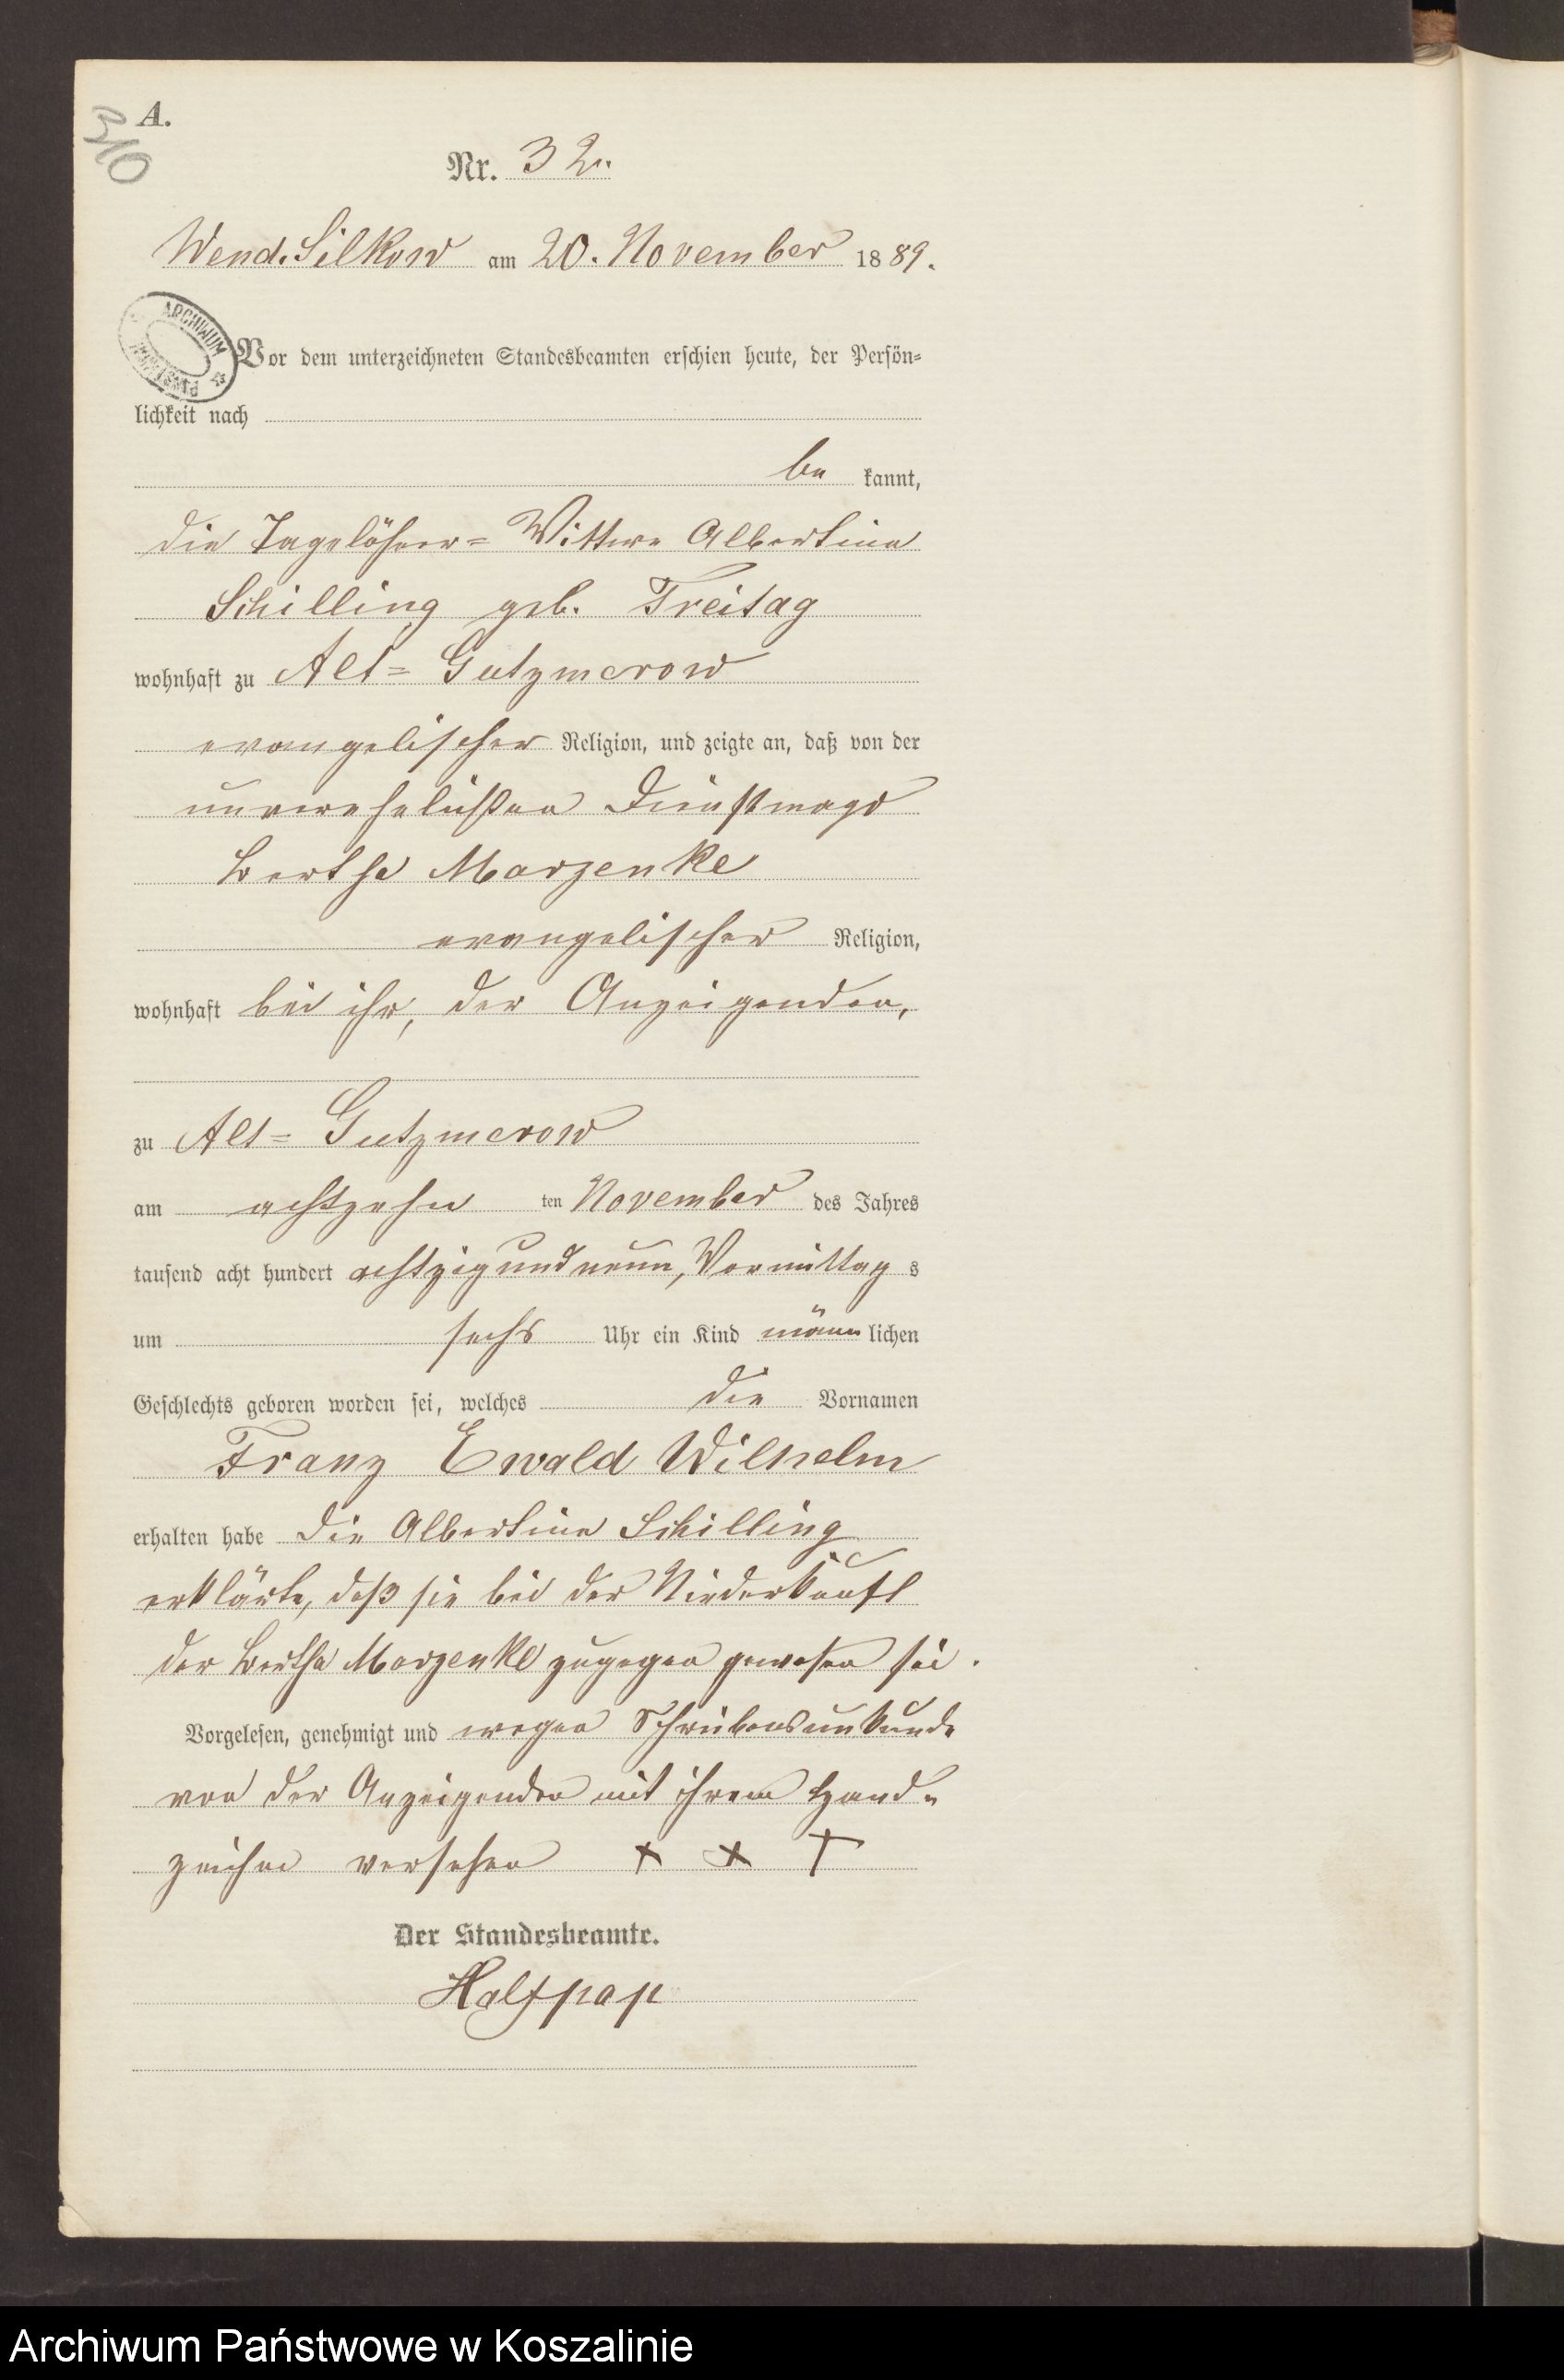 A.
310
Nr. 32.
Wend. Silkow am 20. November 1889.
ARCHIWUM PAŃSTWOWE
Vor dem unterzeichneten Standesbeamten erschien heute, der Persön=
lichkeit nach
be kannt,
die Tagelöhner= Wittwe Albertine
Schilling geb. Freitag
wohnhaft zu Alt= Gutzmerow
evangelischer Religion, und zeigte an, daß von der
unverehelichten Dienstmagd
Bertha Marzenke
evangelischer Religion,
wohnhaft bei ihr, der Anzeigenden,
zu Alt= Gutzmerow
am achtzehn ten November des Jahres
tausend acht hundert achtzig und neun, Vormittag s
um sechs Uhr ein Kind männ lichen
Geschlechts geboren worden sei, welches die Vornamen
Franz Ewald Wilhelm
erhalten habe die Albertine Schilling
erklärte, daß sie bei der Niederkunft
der Bertha Marzenke zugegen gewesen sei.
Vorgelesen, genehmigt und wegen Schreibensunkunde
von der Anzeigenden mit ihrem Hand=
zeichen versehen + + +
Der Standesbeamte.
Halfpap
Archiwum Państwowe w Koszalinie